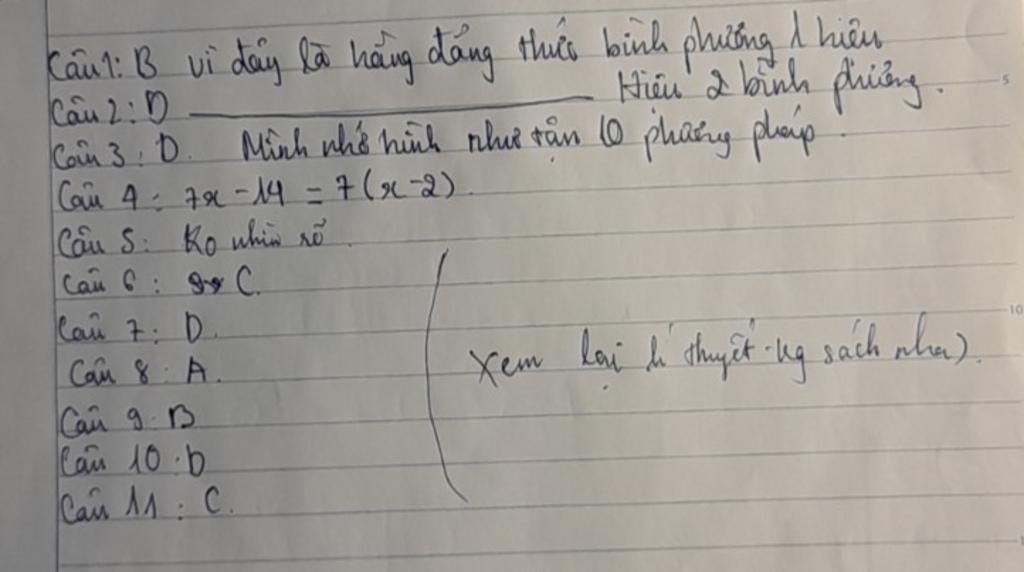 Câu 1: B vì đây là hằng đẳng thức bình phương 1 hiệu
Câu 2: D ———————— Hiệu 2 bình phương.
Câu 3: D. Mình nhớ hình như tận 10 phương pháp.
Câu 4: 7x - 14 = 7(x-2)
Câu 5: Ko nhìn rõ.
Câu 6: C.
Câu 7: D.
Câu 8: A.
Câu 9: B
Câu 10: D
Câu 11: C.
(Xem lại lí thuyết sách nha).